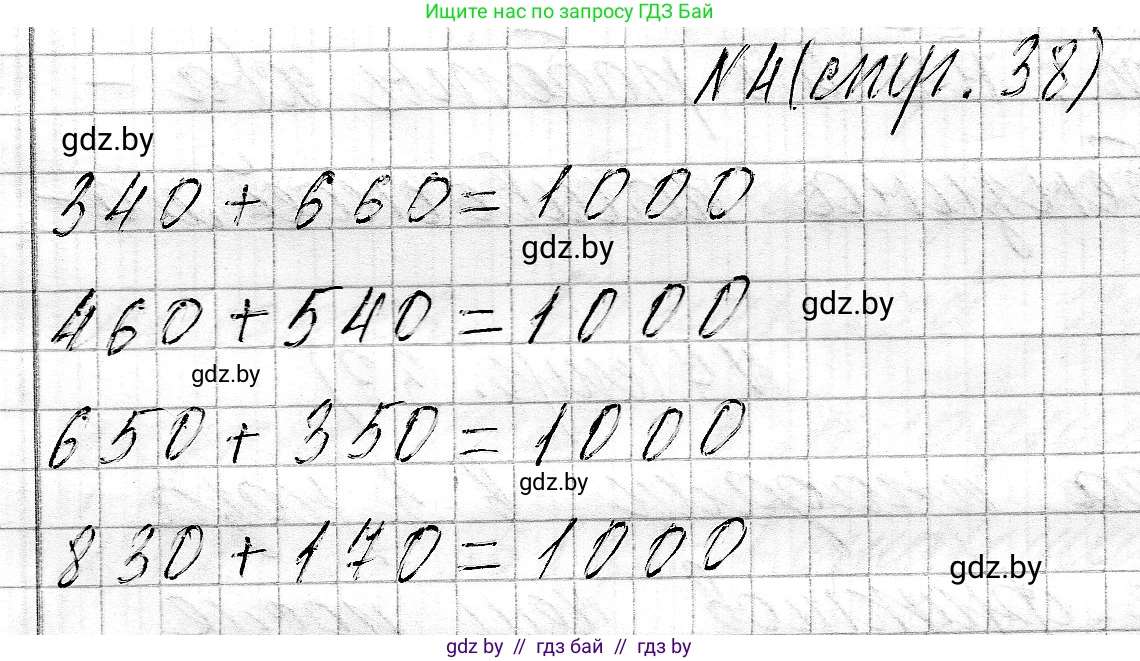 Ищите нас по запросу ГДЗ Бай
N 4 (стр. 38)
gdz.by
340 + 660 = 1000
gdz.by
460 + 540 = 1000
gdz.by
gdz.by
650 + 350 = 1000
gdz.by
830 + 170 = 1000
gdz.by
gdz by // гдз бай // гдз by